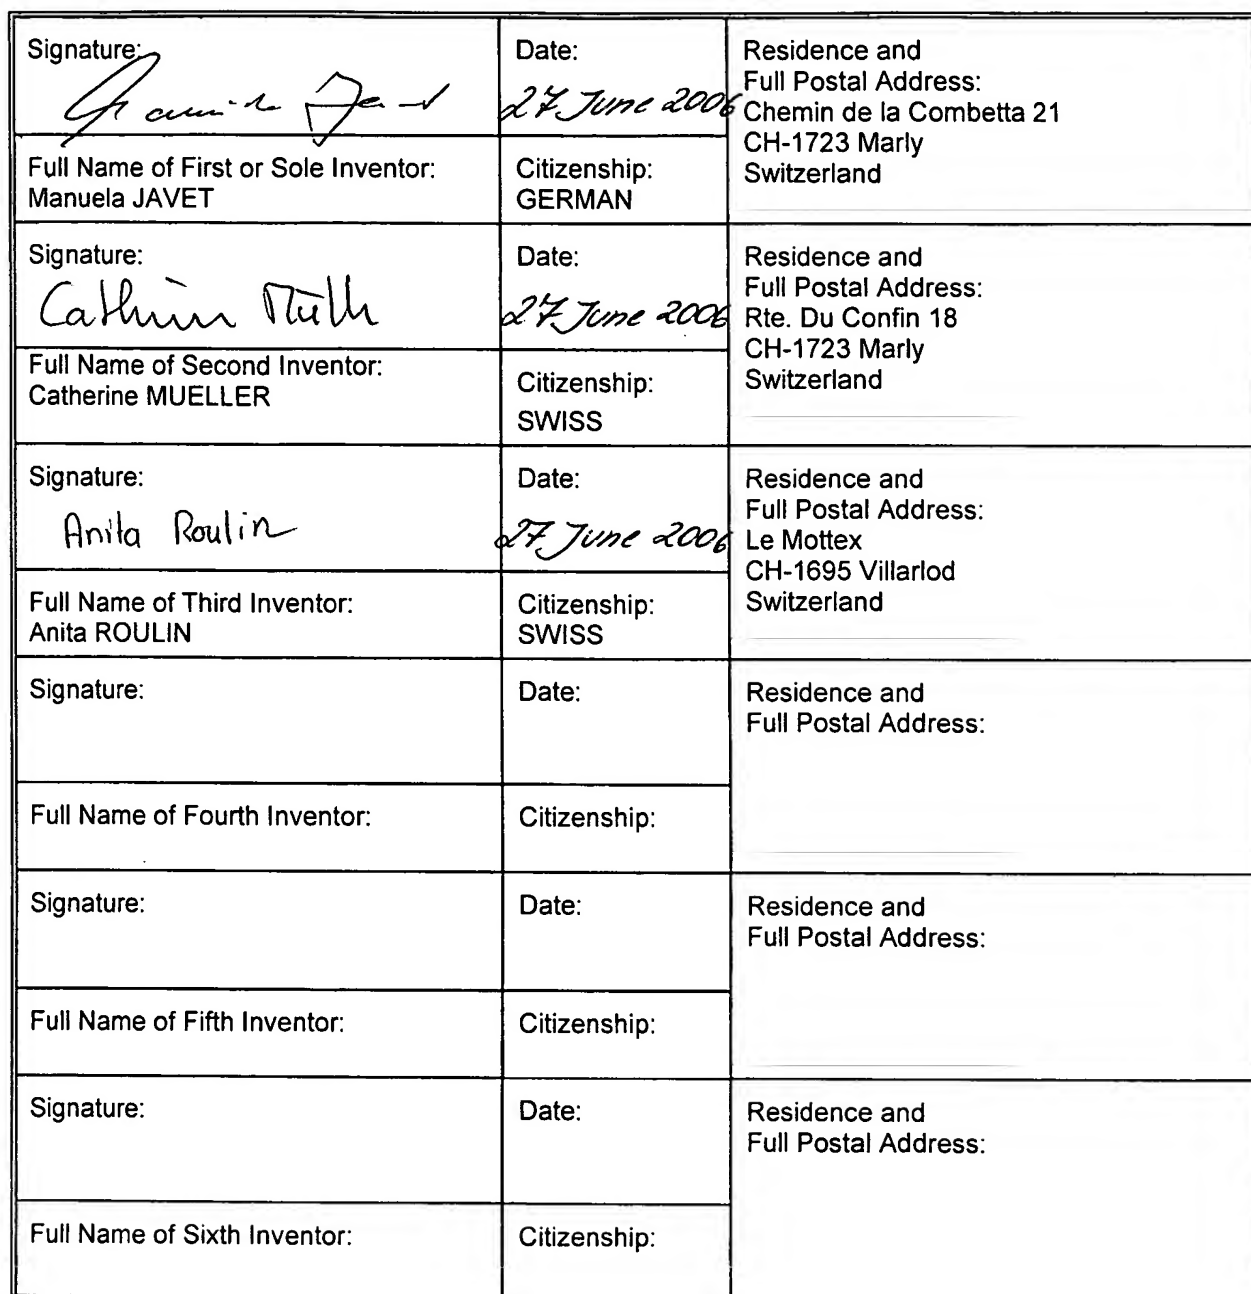 Signature:
Date:
Residence and
Full Postal Address:
Chemin de la Combetta 21
CH-1723 Marly
Switzerland
27 June 2006
Full Name of First or Sole Inventor:
Manuela JAVET
Citizenship:
GERMAN
Signature:
Date:
Residence and
Full Postal Address:
Rte. Du Confin 18
CH-1723 Marly
Switzerland
27 June 2006
Full Name of Second Inventor:
Catherine MUELLER
Citizenship:
SWISS
Signature:
Anita Roulin
Date:
27 June 2006
Residence and
Full Postal Address:
Le Mottex
CH-1695 Villarlod
Switzerland
Full Name of Third Inventor:
Anita ROULIN
Citizenship:
SWISS
Signature:
Date:
Residence and
Full Postal Address:
Full Name of Fourth Inventor:
Citizenship:
Signature:
Date:
Residence and
Full Postal Address:
Full Name of Fifth Inventor:
Citizenship:
Signature:
Date:
Residence and
Full Postal Address:
Full Name of Sixth Inventor:
Citizenship: